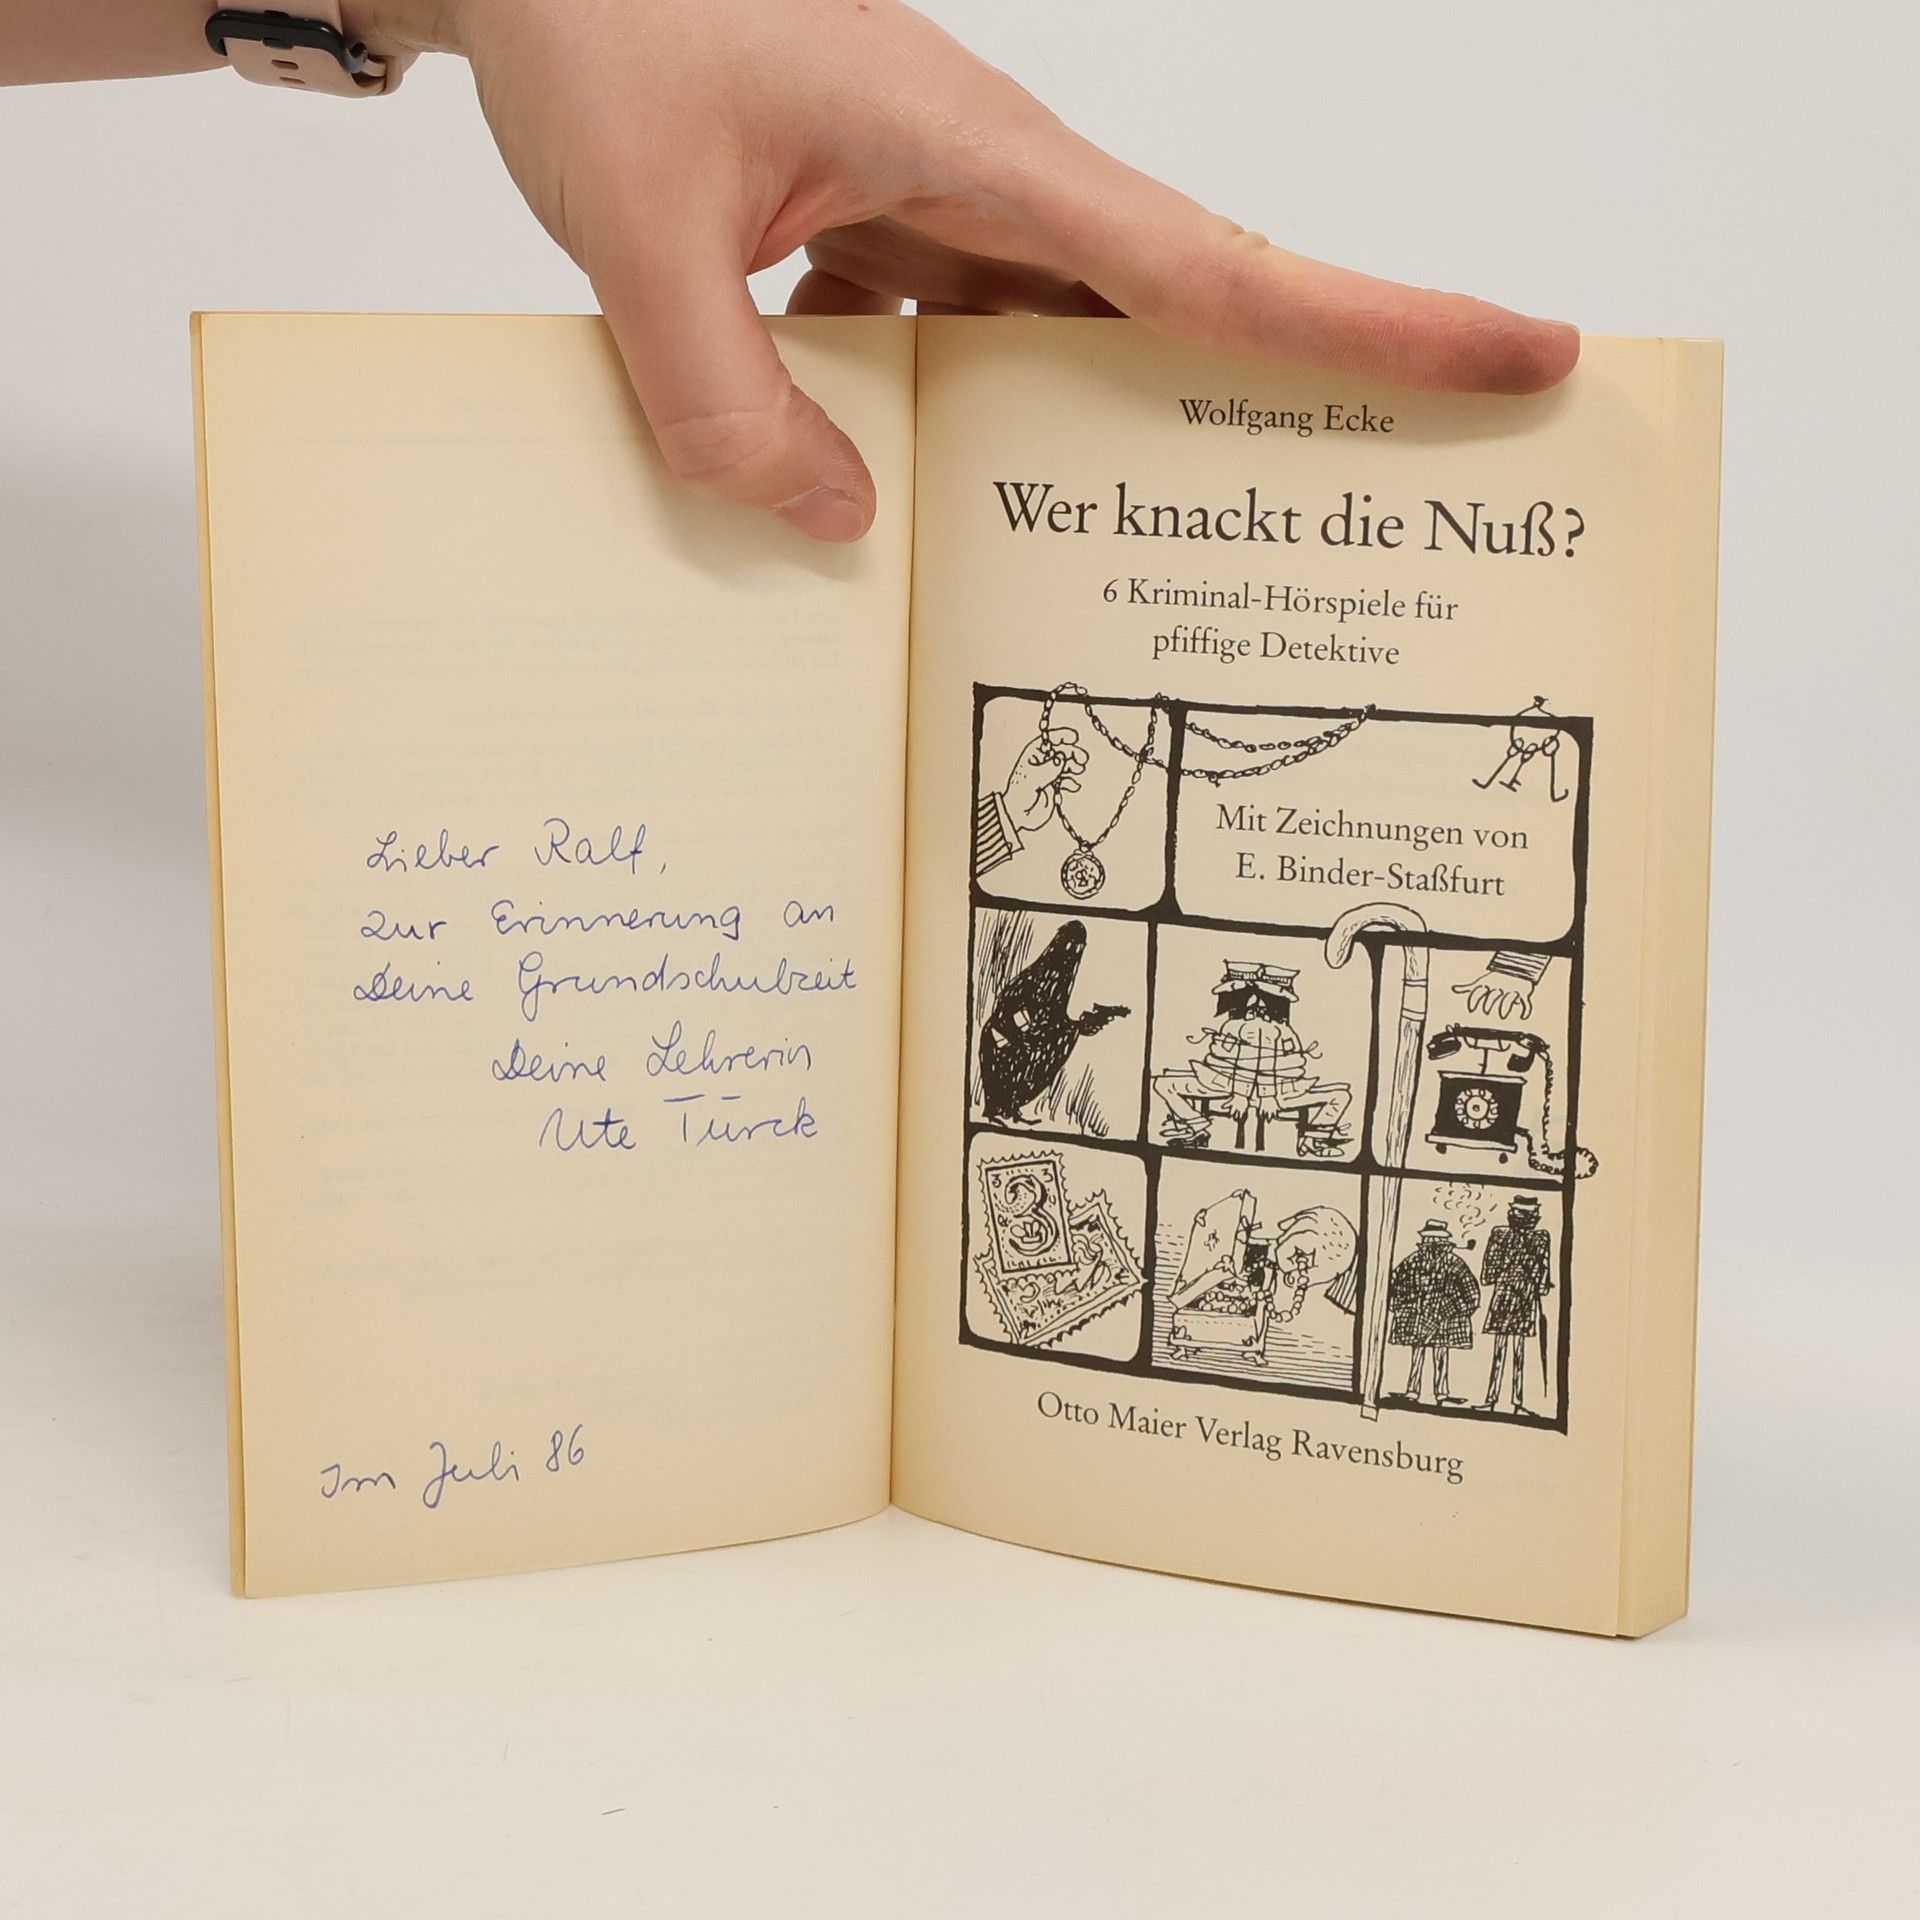 Lieber Ralf,
zur Erinnerung an
Deine Grundschulzeit
Deine Lehrerin
Ute Türck
Im Juli 86
Wolfgang Ecke
Wer knackt die Nuß?
6 Kriminal-Hörspiele für
pfiffige Detektive
Mit Zeichnungen von
E. Binder-Staßfurt
Otto Maier Verlag Ravensburg